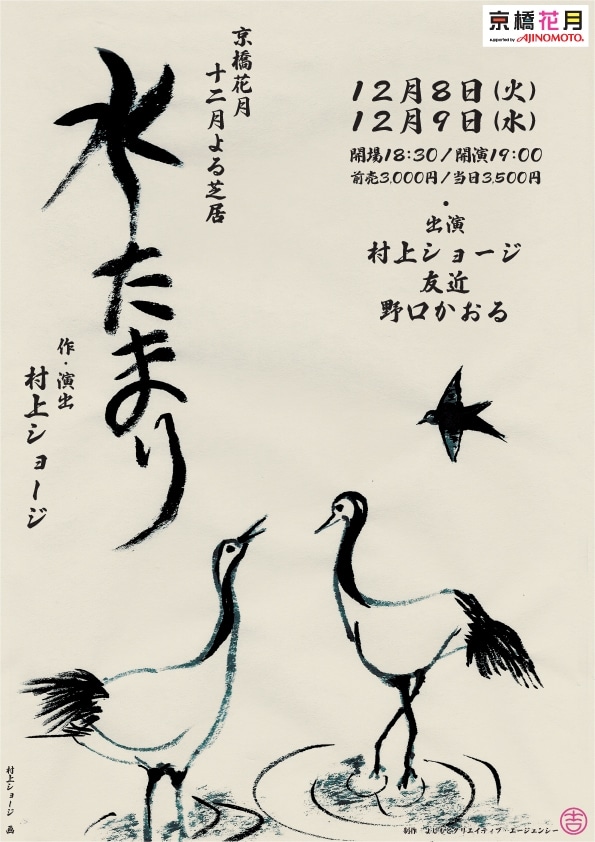 京橋花月
supported by AJINOMOTO.
京橋花月
十二月よる芝居
水たまり
作・演出
村上ショージ
12月8日(火)
12月9日(水)
開場18:30/開演19:00
前売3,000円/当日3,500円
・
出演
村上ショージ
友近
野口かおる
村上ショージ 画
制作 よしもとクリエイティブ・エージェンシー
吉